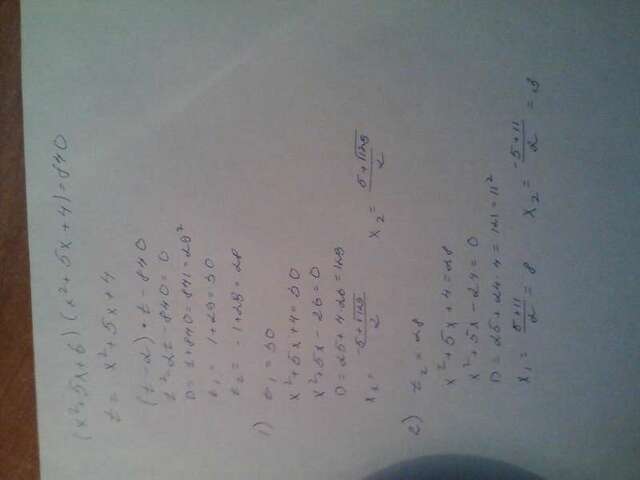 (x²+5x+6)(x²+5x+4)=840
t = x²+5x+4
(t-2)•t-840
t²-2t-840=0
D=1+840=841=29²
t₁ = 1+29=30
t₂ = -1+29=28
1) t₁=30
x²+5x+4=30
x²+5x-26=0
D=25+4·26=129
x₁ = -5+√129/2 x₂ = 5+√129/2
2) t₂=28
x²+5x+4=28
x²+5x-24=0
D=25+24·4=121=11²
x₁ = 5+11/2 = 8 x₂ = -5+11/2 = 8